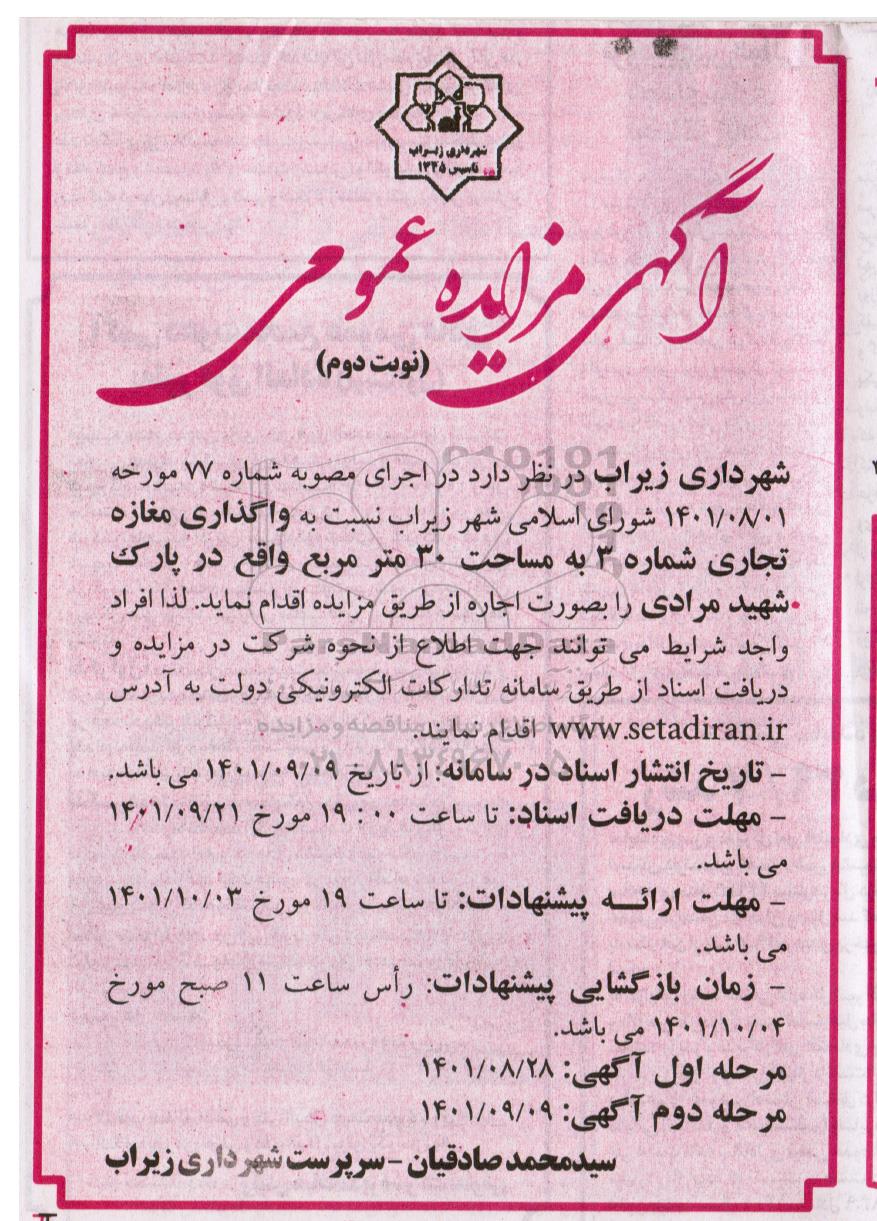 شهرداری زیراب
تاسیس ۱۳۴۵
آگهی مزایده عمومی
(نوبت دوم)
شهرداری زیراب در نظر دارد در اجرای مصوبه شماره ۷۷ مورخه
۱۴۰۱/۰۸/۰۱ شورای اسلامی شهر زیراب نسبت به واگذاری مغازه
تجاری شماره ۳ به مساحت ۳۰ متر مربع واقع در پارک
شهید مرادی را بصورت اجاره از طریق مزایده اقدام نماید. لذا افراد
واجد شرایط می توانند جهت اطلاع از نحوه شرکت در مزایده و
دریافت اسناد از طریق سامانه تدارکات الکترونیکی دولت به آدرس
www.setadiran.ir اقدام نمایند.
- تاریخ انتشار اسناد در سامانه: از تاریخ ۱۴۰۱/۰۹/۰۹ می باشد.
- مهلت دریافت اسناد: تا ساعت ۰۰ : ۱۹ مورخ ۱۴۰۱/۰۹/۲۱
می باشد.
- مهلت ارائه پیشنهادات: تا ساعت ۱۹ مورخ ۱۴۰۱/۱۰/۰۳
می باشد.
- زمان بازگشایی پیشنهادات: رأس ساعت ۱۱ صبح مورخ
۱۴۰۱/۱۰/۰۴ می باشد.
مرحله اول آگهی: ۱۴۰۱/۰۸/۲۸
مرحله دوم آگهی: ۱۴۰۱/۰۹/۰۹
سیدمحمد صادقیان - سرپرست شهرداری زیراب